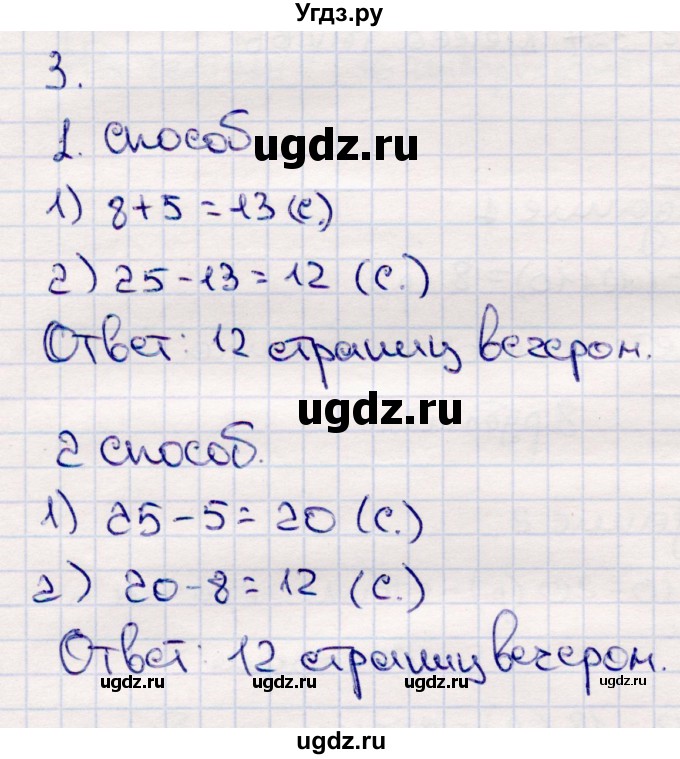 Угдз.ру
3.
1. способ
ugdz.ru
1) 8+5=13 (с.)
2) 25-13=12 (с.)
Ответ: 12 страниц вечером.
ugdz.ru
2 способ.
1) 25-5=20 (с.)
2) 20-8=12 (с.)
Ответ: 12 страниц вечером.
ugdz.ru ugdz.ru ugdz.ru ugdz.ru
ugdz.ru